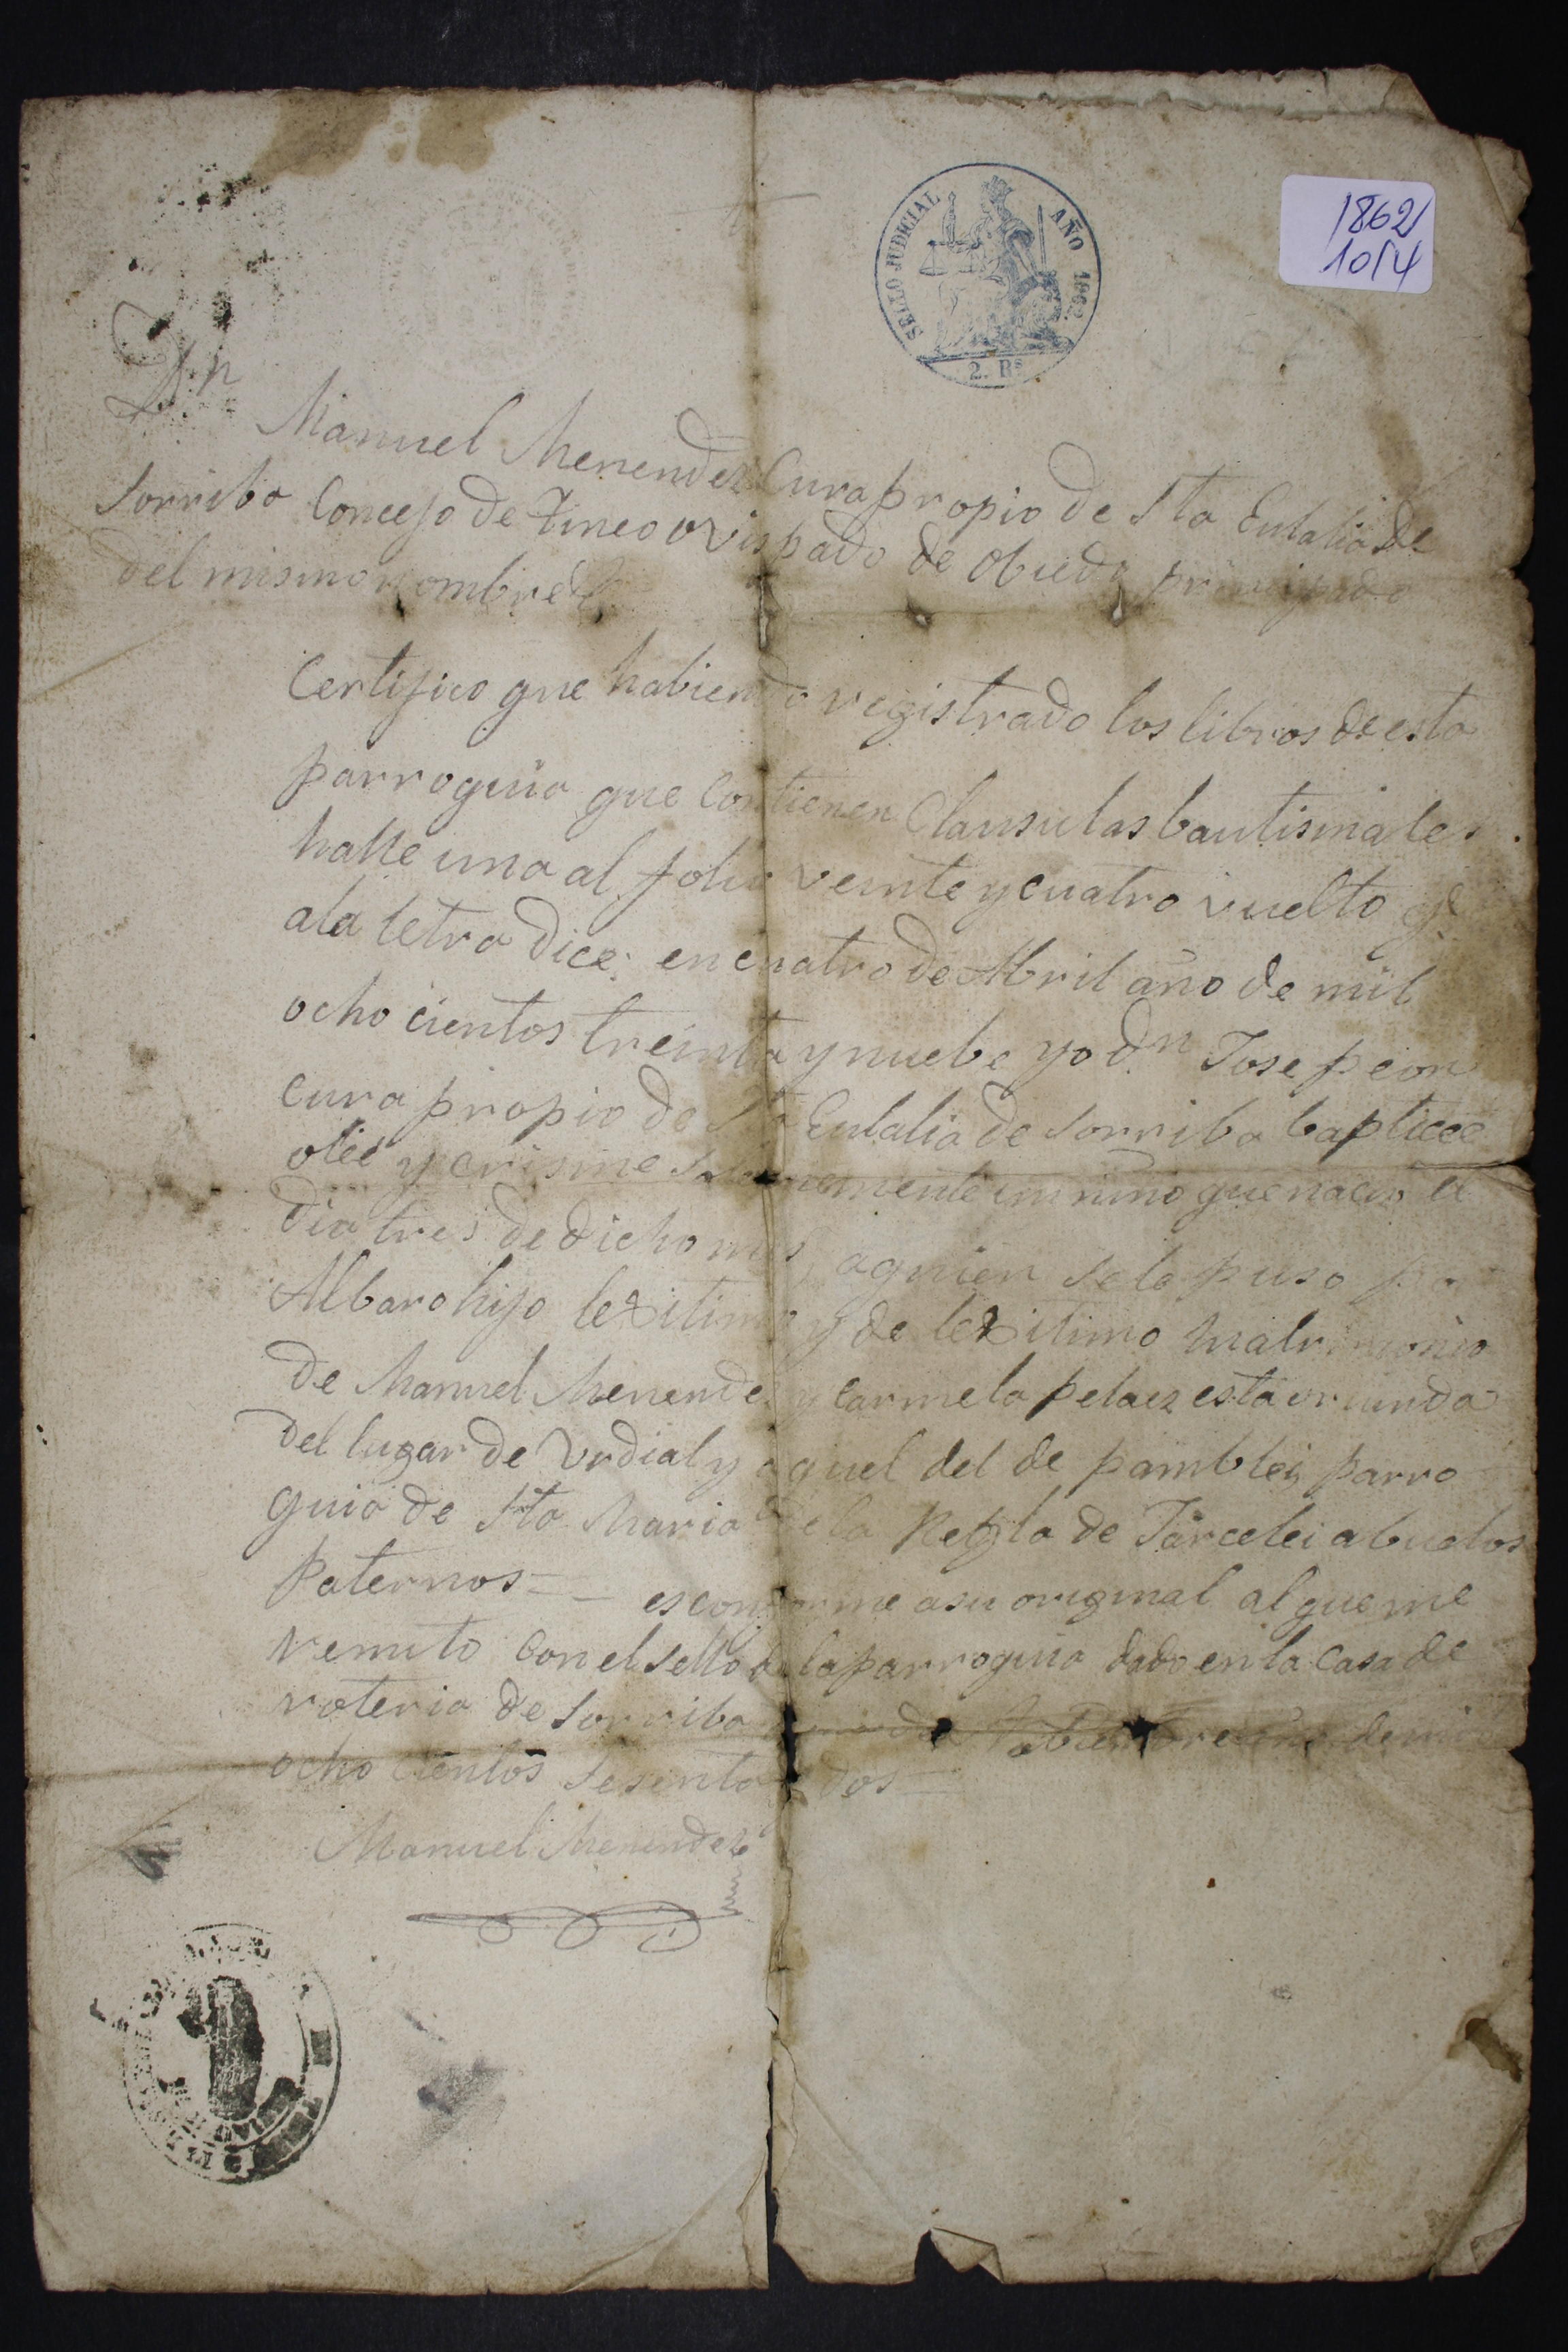 SELLO JUDICIAL AÑO 1862
2. Rs
1862
10/4
Dn Manuel Menendez Cura propio de Sta Eulalia de
Sorriba Concejo de Tineo ovispado de Obiedo principado
del mismo nombre
Certifico que habiendo registrado los libros de esta
parroquia que Contienen Clausulas bautismales
halle una al folio veinte y cuatro vuelto qe
ala letra dice: en cuatro de Abril año de mil
ocho cientos treinta y nuebe yo dn Jose peon
Cura propio de Sta Eulalia de Sorriba baptice
olee y crisme Solemnemente un niño que nacio el
dia tres de dicho mes aquien se le puso por
Albaro hijo lexitimo y de lexitimo matrimonio
de Manuel Menendez y Carmela pelaez esta oriunda
del lugar de Vrdial y aquel del de pamblei parro
quia de Sta Maria de la Regla de Tarcelei abuelos
paternos = es conforme a su original al que me
remito Con el Sello de la parroquia dado en la Casa de
roteria de Sorriba de mil
ocho cientos Sesenta y dos
Manuel Menendez